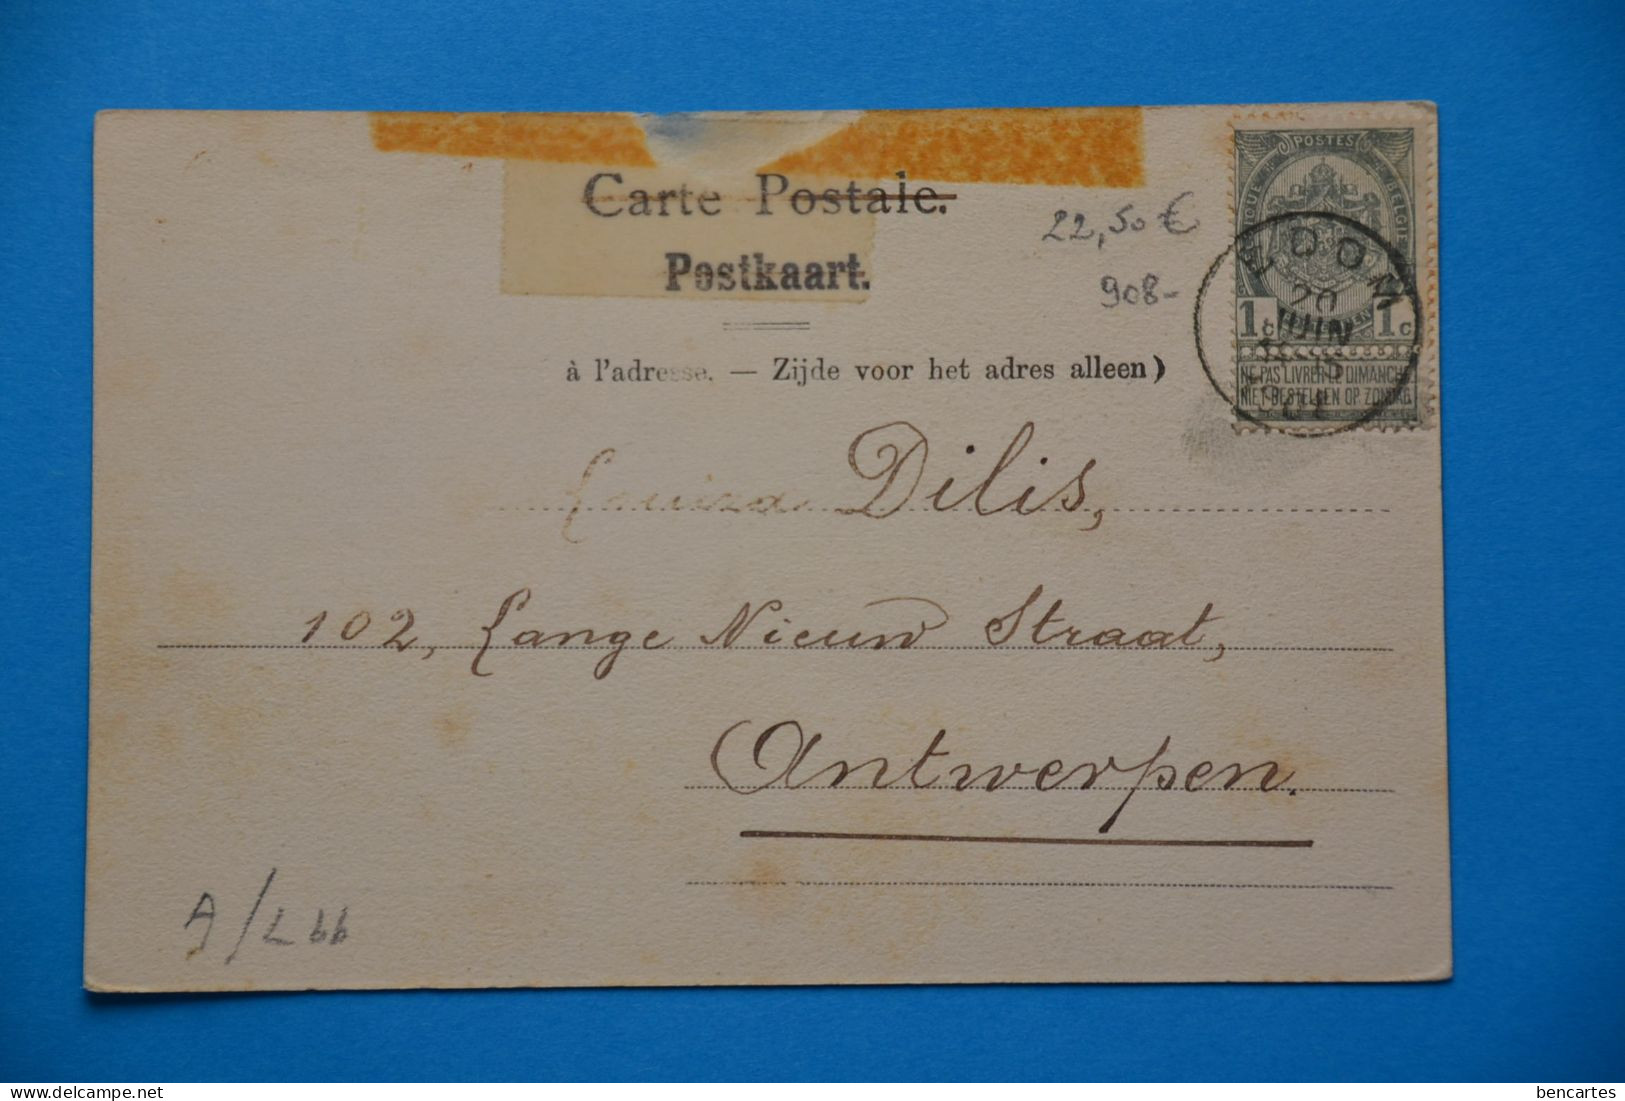 Carte Postale.
Postkaart.
à l'adresse. — Zijde voor het adres alleen)
22,50 €
908-
POSTES
BELGIE
1c 1c
NE PAS LIVRER LE DIMANCHE
NIET BESTELLEN OP ZONDAG
20
JUIN
Louisa Dilis,
102, Lange Nieuw Straat,
Antwerpen.
bencartes